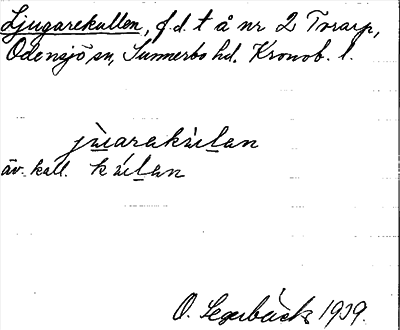 Ljugarekullen, f.d. t å nr 2 Torarp,
Odensjö sn, Sunnerbo hd. Kronob. l.
jùarakùlan
äv. kall. kùlan
O. Segerbäck 1939.